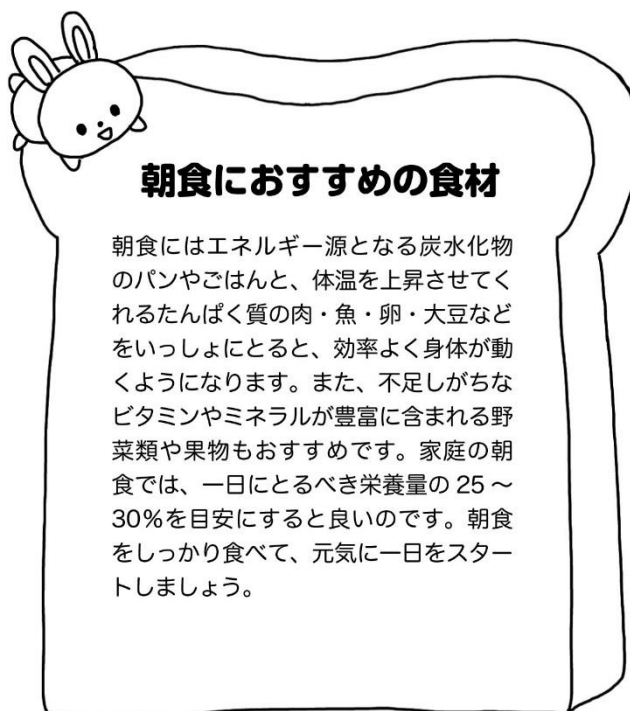 朝食におすすめの食材
朝食にはエネルギー源となる炭水化物
のパンやごはんと、体温を上昇させてく
れるたんぱく質の肉・魚・卵・大豆など
をいっしょにとると、効率よく身体が動
くようになります。また、不足しがちな
ビタミンやミネラルが豊富に含まれる野
菜類や果物もおすすめです。家庭の朝
食では、一日にとるべき栄養量の 25 〜
30%を目安にすると良いのです。朝食
をしっかり食べて、元気に一日をスター
トしましょう。